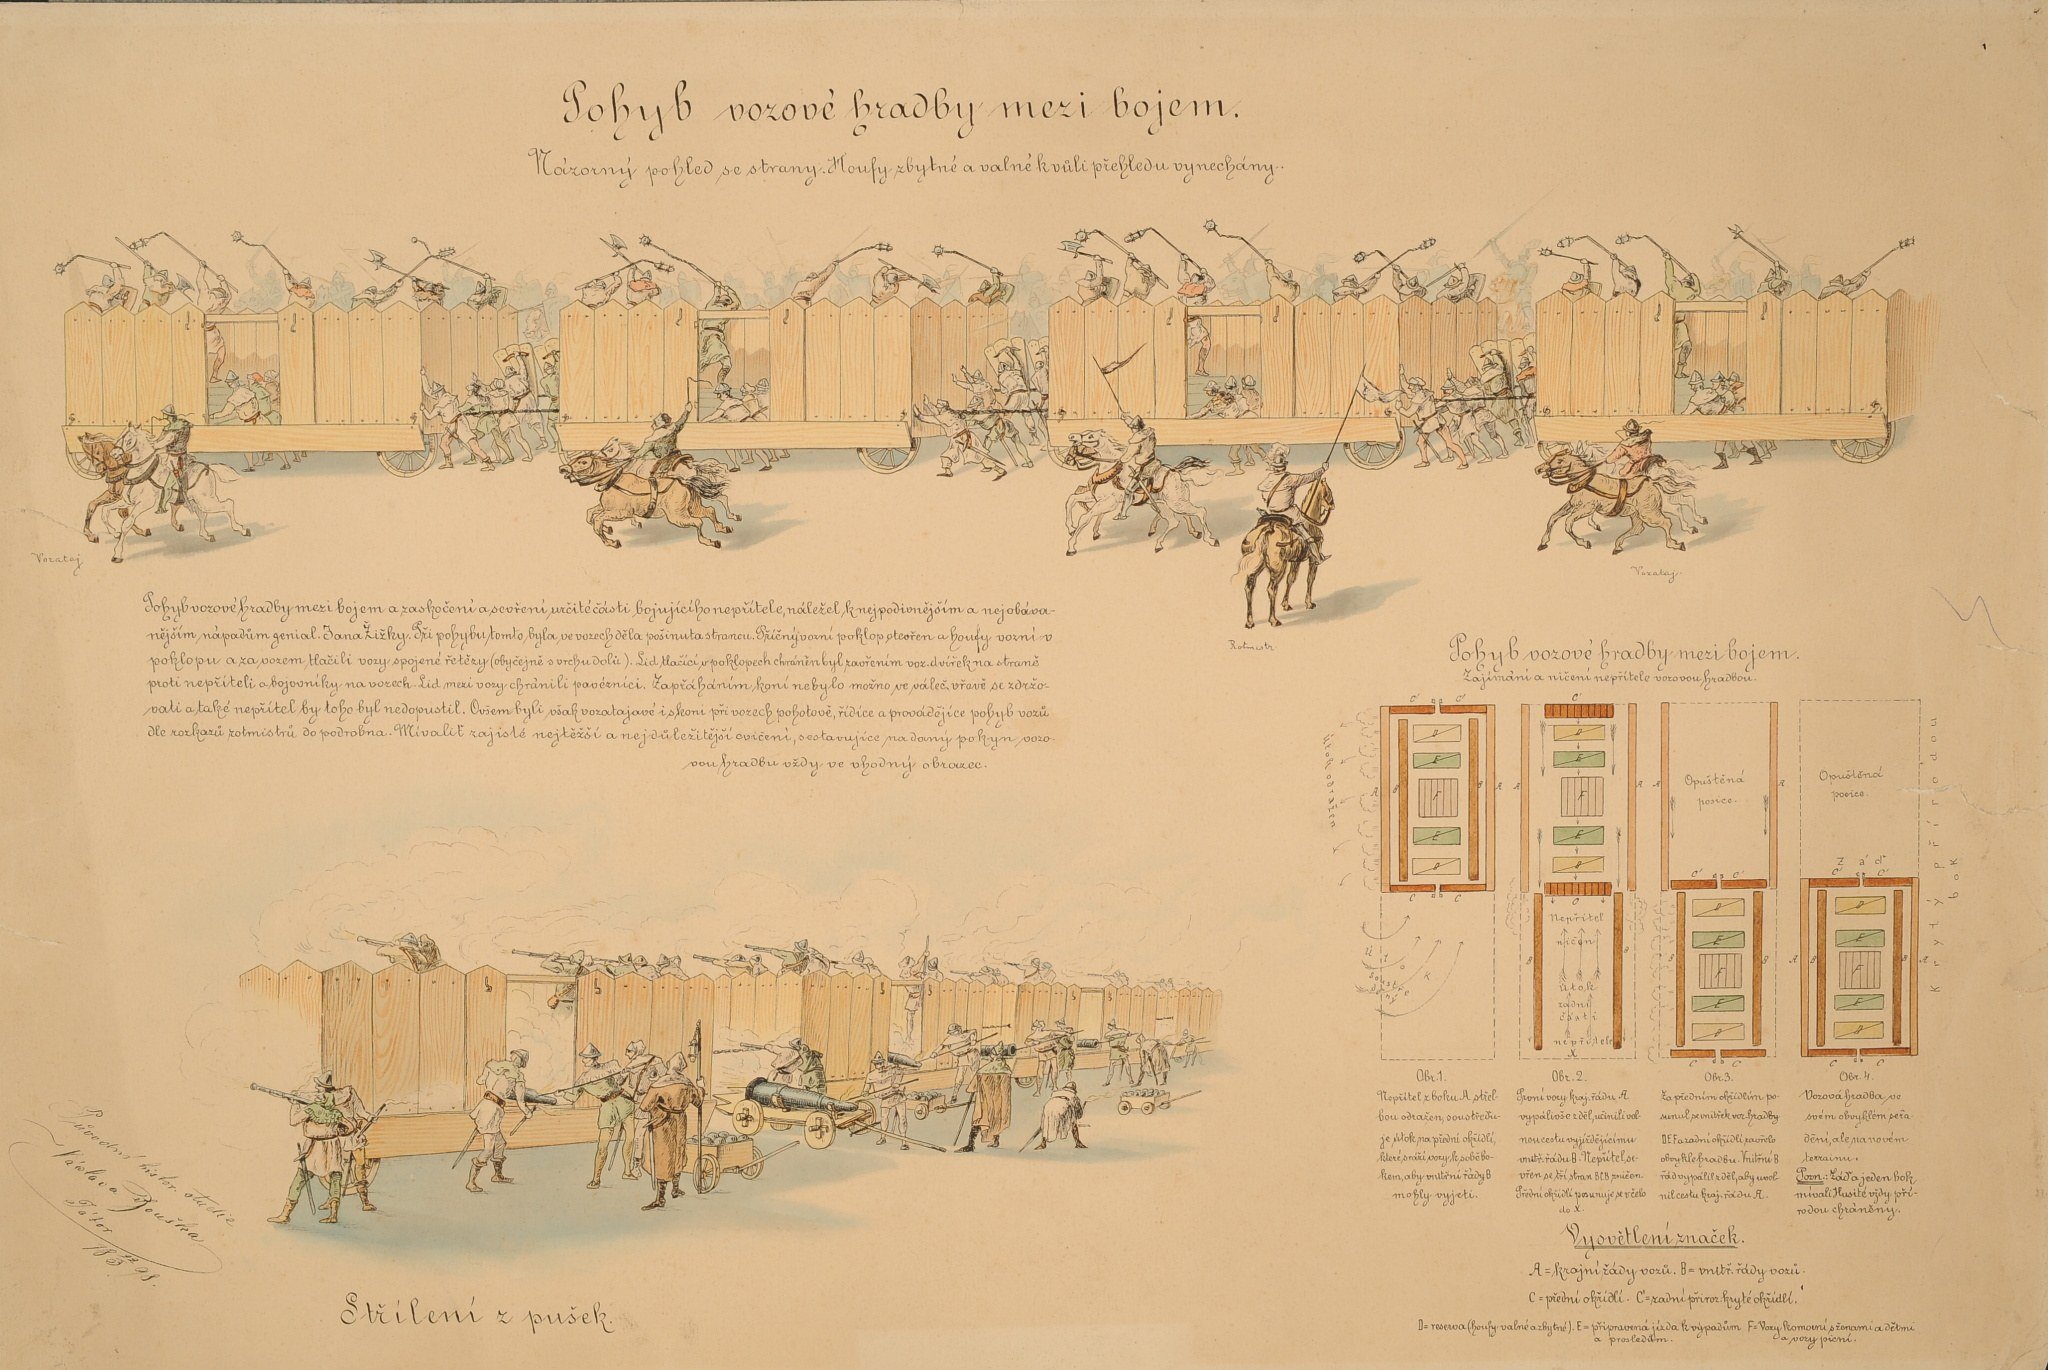 Pohyb vozové hradby mezi bojem.
Názorný pohled se strany. Houfy zbytné a valné kvůli přehledu vynechány.
Vozataj
Vozataj.
Rotmistr
Pohyb vozové hradby mezi bojem a zaskočení a sevření určité části bojujícího nepřítele, náležel k nejpodivnějším a nejobáva-
nějším nápadům genial. Jana Žižky. Při pohybu tomto byla ve vozech děla pošinuta stranou. Příčný vozní poklop otevřen a houfy vozní v
poklopu a za vozem tlačili vozy spojené řetězy (obyčejně s vrchu dolů). Lid tlačící v poklopech chráněn byl zavřením voz. dvířek na straně
proti nepříteli a bojovníky na vozech. Lid mezi vozy chránili pavézníci. Zapřáháním koní nebylo možno ve váleč. vřavě se zdržo-
vati a také nepřítel by toho byl nedopustil. Ovšem byli však vozatajové i s koni při vozech pohotově, řídíce a provádějíce pohyb vozů
dle rozkazů rotmistrů do podrobna. Mívaliť zajisté nejtěžší a nejdůležitější cvičení, sestavujíce na daný pokyn vozo-
vou hradbu vždy ve vhodný obrazec.
Pohyb vozové hradby mezi bojem.
Zajímání a ničení nepřítele vozovou hradbou.
útok odražen
Opuštěná
posice.
Opuštěná
posice.
Nepřítel
ničen
útok
zadní
části
nepřítele
X
Zaď
krytý přírodou
bok
Obr. 1.
Nepřítel z boku A střel-
bou odražen, soustřeďu-
je útok na přední okřídlí,
které sráží vozy k sobě bo-
kem, aby vnitřní řády B
mohly vyjeti.
Obr. 2.
První vozy kraj. řádu A
vypálivše z děl, učinili vol-
nou cestu vyjíždějícímu
vnitř. řádu B. Nepřítel se-
vřen se tří stran BCB zničen.
Přední okřídlí posunuje se v čelo
do X.
Obr. 3.
Za předním okřídlím po-
sunul se vnitřek voz. hradby
DEF a zadní okřídlí zavřelo
obvykle hradbu. Vnitřní B
řád vypálil z děl, aby uvol-
nil cestu kraj. řádu A.
Obr. 4.
Vozová hradba ve
svém obvyklém seřa-
dění, ale na novém
terrainu.
Pozn.: Záď a jeden bok
mívali Husité vždy pří-
rodou chráněny.
Vysvětlení značek.
A = krajní řády vozů. B = vnitř. řády vozů.
C = přední okřídlí. C' = zadní přiroz. kryté okřídlí.
D = reserva (houfy valné a zbytné). E = připravená jízda k výpadům F = Vozy komorní s ženami a dětmi
a prosledům. a vozy pícní.
Střílení z pušek.
Původní histor. studie
Václava Mouška
Tábor